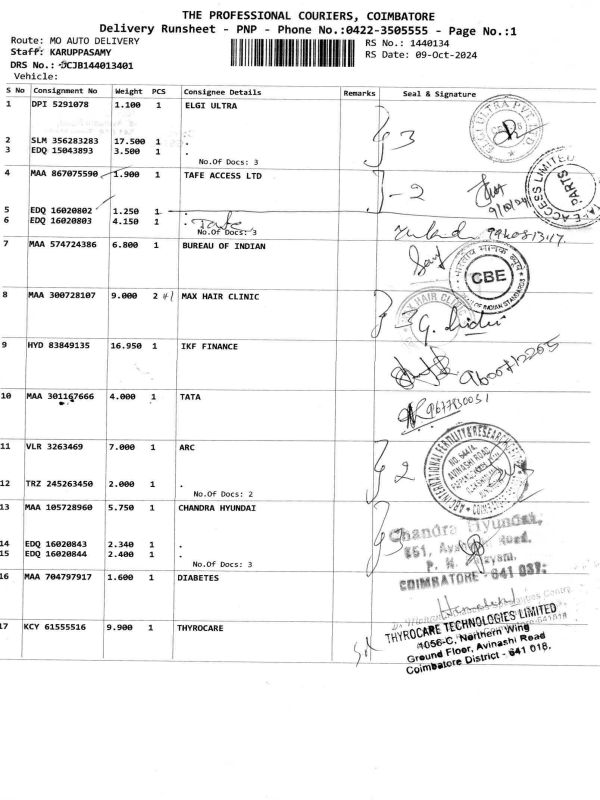 THE PROFESSIONAL COURIERS, COIMBATORE
Delivery Runsheet - PNP - Phone No.:0422-3505555 - Page No.:1
Route: MO AUTO DELIVERY
RS No.: 1440134
Staff: KARUPPASAMY
RS Date: 09-Oct-2024
DRS No.: CJB144013401
Vehicle:
S No Consignment No Weight PCS Consignee Details Remarks Seal & Signature
1 DPI 5291078 1.100 1 ELGI ULTRA
ELGI ULTRA PVT. LTD
3
2 SLM 356283283 17.500 1 .
3 EDQ 15043893 3.500 1 .
No.Of Docs: 3
4 MAA 867075590 1.900 1 TAFE ACCESS LTD
-2
TAFE ACCESS LIMITED
PARTS
9/10/24
5 EDQ 16020802 1.250 1 .
6 EDQ 16020803 4.150 1 . Tafe
No.Of Docs: 3
7 MAA 574724386 6.800 1 BUREAU OF INDIAN
भारतीय मानक ब्यूरो
CBE
BUREAU OF INDIAN STANDARDS
8 MAA 300728107 9.000 2 MAX HAIR CLINIC
MAX HAIR CLINIC
3
9 HYD 83849135 16.950 1 IKF FINANCE
10 MAA 301167666 4.000 1 TATA
9677830051
11 VLR 3263469 7.000 1 ARC
2
ARC INTERNATIONAL FERTILITY & RESEARCH
AVINASHI ROAD
COIMBATORE
12 TRZ 245263450 2.000 1 .
No.Of Docs: 2
13 MAA 105728960 5.750 1 CHANDRA HYUNDAI
3
Chandra Hyundai,
Road.
COIMBATORE - 641 037.
14 EDQ 16020843 2.340 1 .
15 EDQ 16020844 2.400 1 .
No.Of Docs: 3
16 MAA 704797917 1.600 1 DIABETES
17 KCY 61555516 9.900 1 THYROCARE
THYROCARE TECHNOLOGIES LIMITED
1056-C, Northern Wing
Ground Floor, Avinashi Road
Coimbatore District - 641 018.